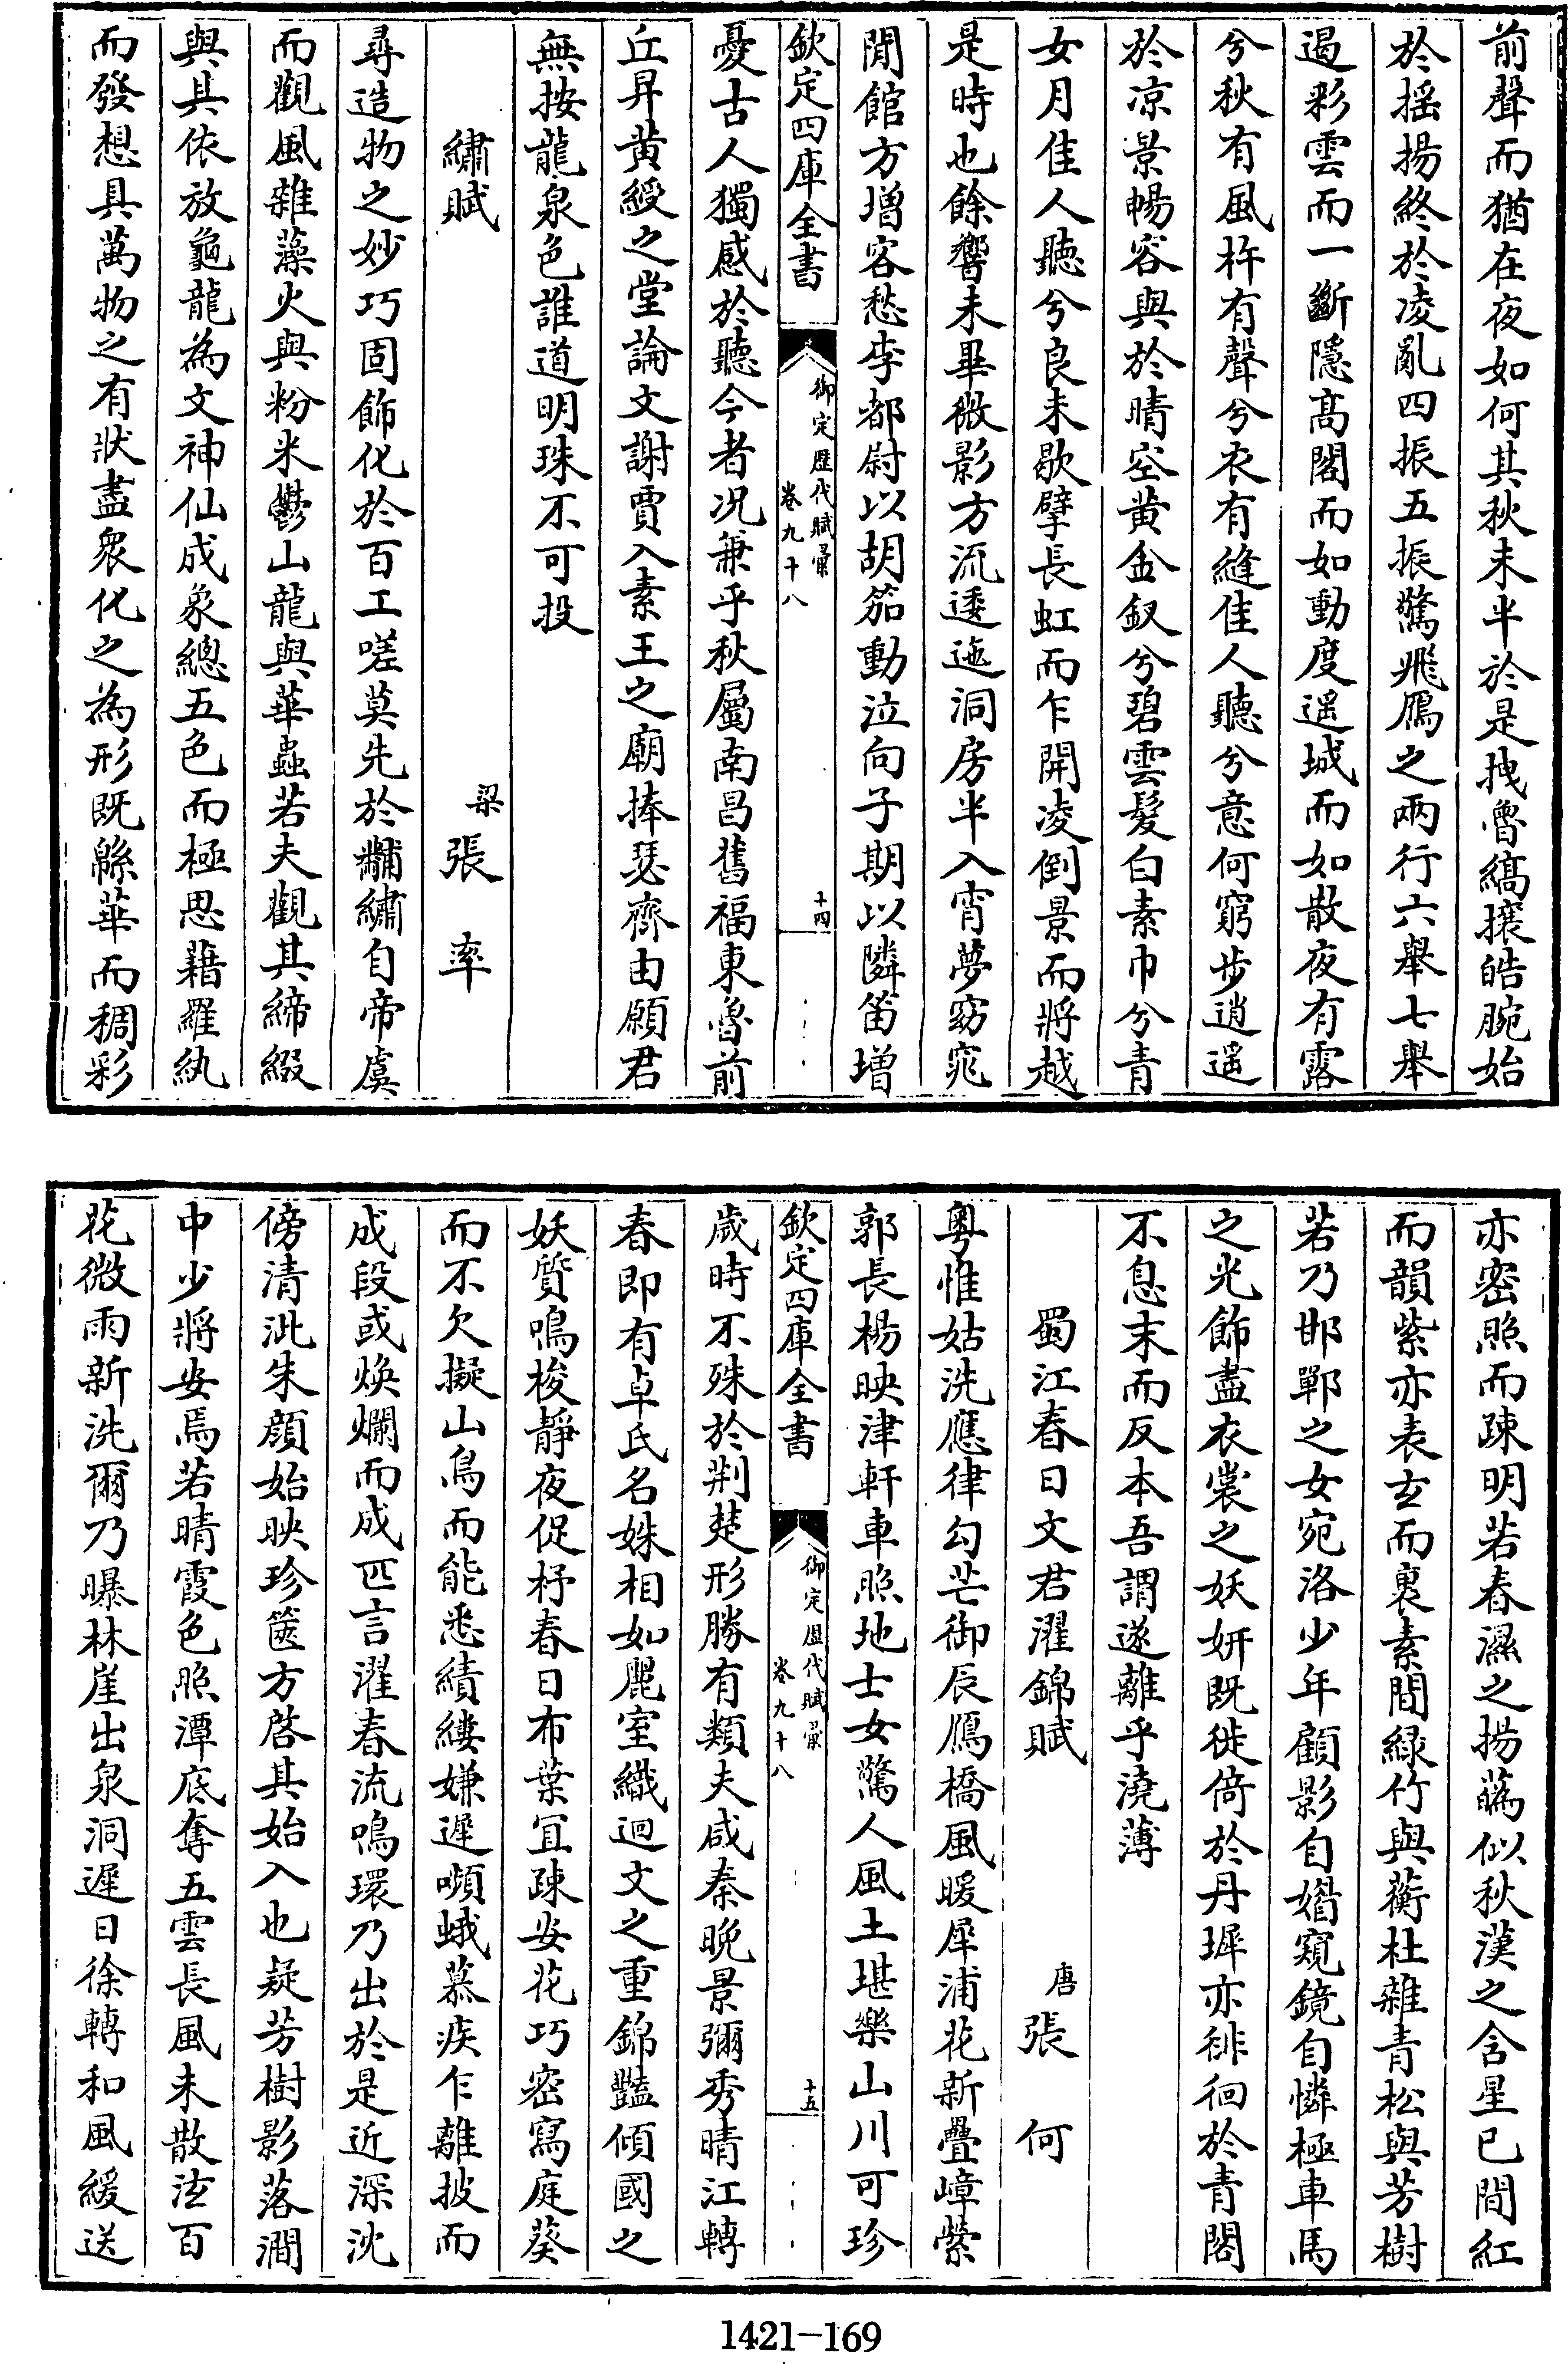 前聲而猶在夜如何其秋未半於是拽魯縞攘皓腕始
於揺揚終於凌亂四振五振驚飛鴈之兩行六舉七舉
遏彩雲而一斷隱髙閣而如動度遥城而如散夜有露
兮秋有風杵有聲兮衣有縫佳人聽兮意何窮步逍遥
於凉景暢容與於晴空黄金釵兮碧雲髪白素巾兮青
女月佳人聽兮良未歇擘長虹而乍開凌倒景而將越
是時也餘響未畢微影方流逶迤洞房半入宵夢窈窕
閒館方增客愁李都尉以胡笳動泣向子期以隣笛增
欽定四庫全書
御定歴代賦彙
卷九十八
十四
憂古人獨感於聽今者况兼乎秋屬南昌舊福東魯前
丘昇黄綬之堂論文謝賈入素王之廟捧瑟齊由願君
無按龍泉色誰道明珠不可投
繡賦
梁張率
尋造物之妙巧固飾化於百工嗟莫先於黼繡自帝虞
而觀風雜藻火與粉米鬱山龍與華蟲若夫觀其締綴
與其依放龜龍為文神仙成象總五色而極思藉羅紈
而發想具萬物之有狀盡衆化之為形既緜華而稠彩
亦密照而疎明若春濕之揚蘤似秋漢之含星已間紅
而韻紫亦表玄而裏素間緑竹與蘅杜雜青松與芳樹
若乃邯鄲之女宛洛少年顧影自媚窺鏡自憐極車馬
之光飾盡衣裳之妖妍既徙倚於丹墀亦徘徊於青閣
不息末而反本吾謂遂離乎澆薄
蜀江春日文君濯錦賦
唐張何
粤惟姑洗應律勾芒御辰鴈橋風暖犀浦花新疊嶂縈
郭長楊映津軒車照地士女驚人風土堪樂山川可珍
欽定四庫全書
御定歴代賦彙
卷九十八
十五
歲時不殊於荆楚形勝有類夫咸秦晩景彌秀晴江轉
春即有卓氏名姝相如麗室織迴文之重錦豔傾國之
妖質鳴梭靜夜促杼春日布葉宜疎安花巧密寫庭葵
而不欠擬山鳥而能悉績縷嫌遲嚬蛾慕疾乍離披而
成段或焕爛而成匹言濯春流鳴環乃出於是近深沈
傍清泚朱顔始映珍篋方啓其始入也疑芳樹影落澗
中少將安焉若晴霞色照潭底奪五雲長風未散泫百
花微雨新洗爾乃曝林崖出泉洞遲日徐轉和風緩送
1421-169